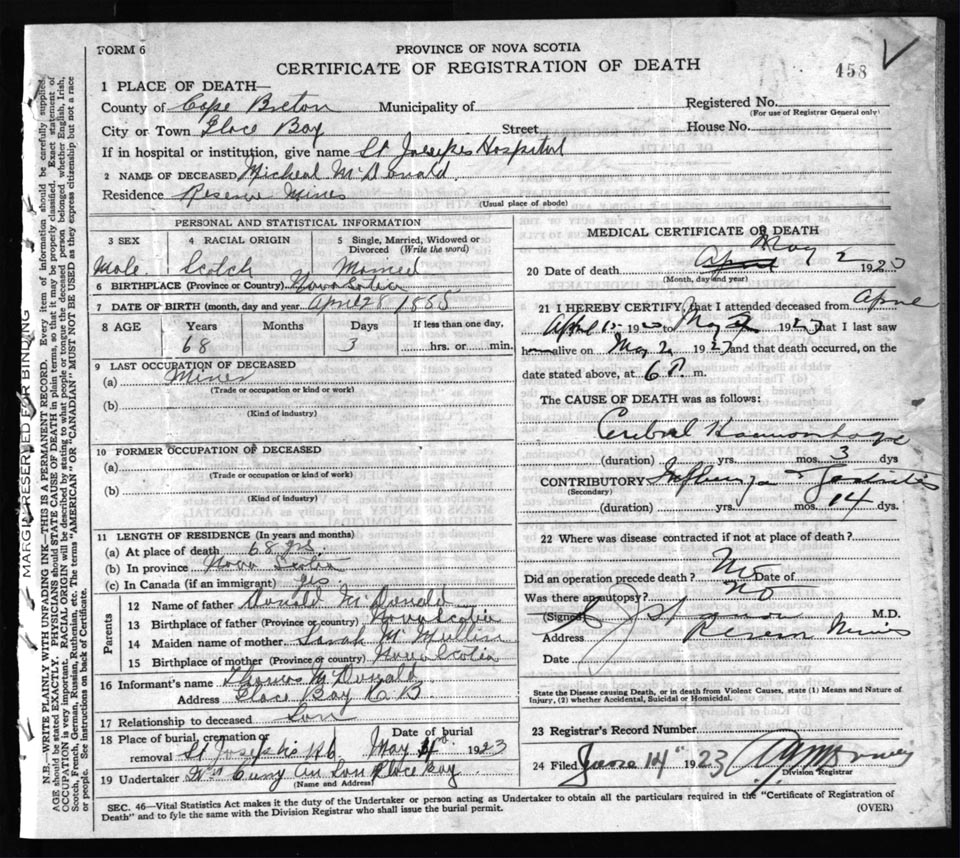 FORM 6
PROVINCE OF NOVA SCOTIA
CERTIFICATE OF REGISTRATION OF DEATH
458
1 PLACE OF DEATH—
County of Cape Breton Municipality of
Registered No.
(For use of Registrar General only)
City or Town Glace Bay Street
House No.
If in hospital or institution, give name St Josephes Hospital
2 NAME OF DECEASED Micheal McDonald.
Residence Reserve Mines
(Usual place of abode)
PERSONAL AND STATISTICAL INFORMATION
3 SEX
Male
4 RACIAL ORIGIN
Scotch
5 Single, Married, Widowed or Divorced (Write the word)
Married
6 BIRTHPLACE (Province or Country) Nova Scotia
7 DATE OF BIRTH (month, day and year April 28 1855
8 AGE Years Months Days If less than one day,
68 3 hrs. or min.
9 LAST OCCUPATION OF DECEASED
(a) Miner
(Trade or occupation or kind or work)
(b)
(Kind of industry)
10 FORMER OCCUPATION OF DECEASED
(a)
(Trade or occupation or kind of work)
(b)
(Kind of industry)
11 LENGTH OF RESIDENCE (In years and months)
(a) At place of death 68 yrs.
(b) In province Nova Scotia
(c) In Canada (if an immigrant) yes
Parents
12 Name of father Donald McDonald
13 Birthplace of father (Province or country) Nova Scotia
14 Maiden name of mother Sarah McMullin
15 Birthplace of mother (Province or country) Nova Scotia
16 Informant's name Thomas McDonald
Address Glace Bay C B
17 Relationship to deceased Son
18 Place of burial, cremation or removal Date of burial
St Joseph's May 4 1923
19 Undertaker Son Glace Bay
(Name and Address)
MEDICAL CERTIFICATE OF DEATH
May
20 Date of death April 2 1923
(Month, day and year)
21 I HEREBY CERTIFY, that I attended deceased from April
April 15 19 to May 2 1923 that I last saw
h alive on May 2 1923 and that death occurred, on the
date stated above, at 6 P. m.
The CAUSE OF DEATH was as follows:
Cerebral Haemorrhage
(duration) yrs. mos. 3 dys
CONTRIBUTORY Influenza Gastritis
(Secondary)
(duration) yrs. mos. 14 dys.
22 Where was disease contracted if not at place of death?
Did an operation precede death? No Date of
Was there an autopsy? No
(Signed) M.D.
Address Reserve Mines
Date
State the Disease causing Death, or in death from Violent Causes, state (1) Means and Nature of
Injury, (2) whether Accidental, Suicidal or Homicidal.
23 Registrar's Record Number
24 Filed June 14" 1923
Division Registrar
SEC. 46—Vital Statistics Act makes it the duty of the Undertaker or person acting as Undertaker to obtain all the particulars required in the "Certificate of Registration of
Death" and to fyle the same with the Division Registrar who shall issue the burial permit. (OVER)
MARGIN RESERVED FOR BINDING
N.B.—WRITE PLAINLY WITH UNFADING INK—THIS IS A PERMANENT RECORD. Every item of information should be carefully supplied.
AGE should be stated EXACTLY. PHYSICIANS should STATE CAUSE OF DEATH in plain terms, so that it may be properly classified. Exact statement of
OCCUPATION is very important. RACIAL ORIGIN will be described by stating to what people or tongue the deceased person belonged whether English, Irish,
Scotch, French, German, Russian, Ruthenian, etc. The terms "AMERICAN" or "CANADIAN" MUST NOT BE USED as they express citizenship but not a race
or people. See instructions on back of Certificate.